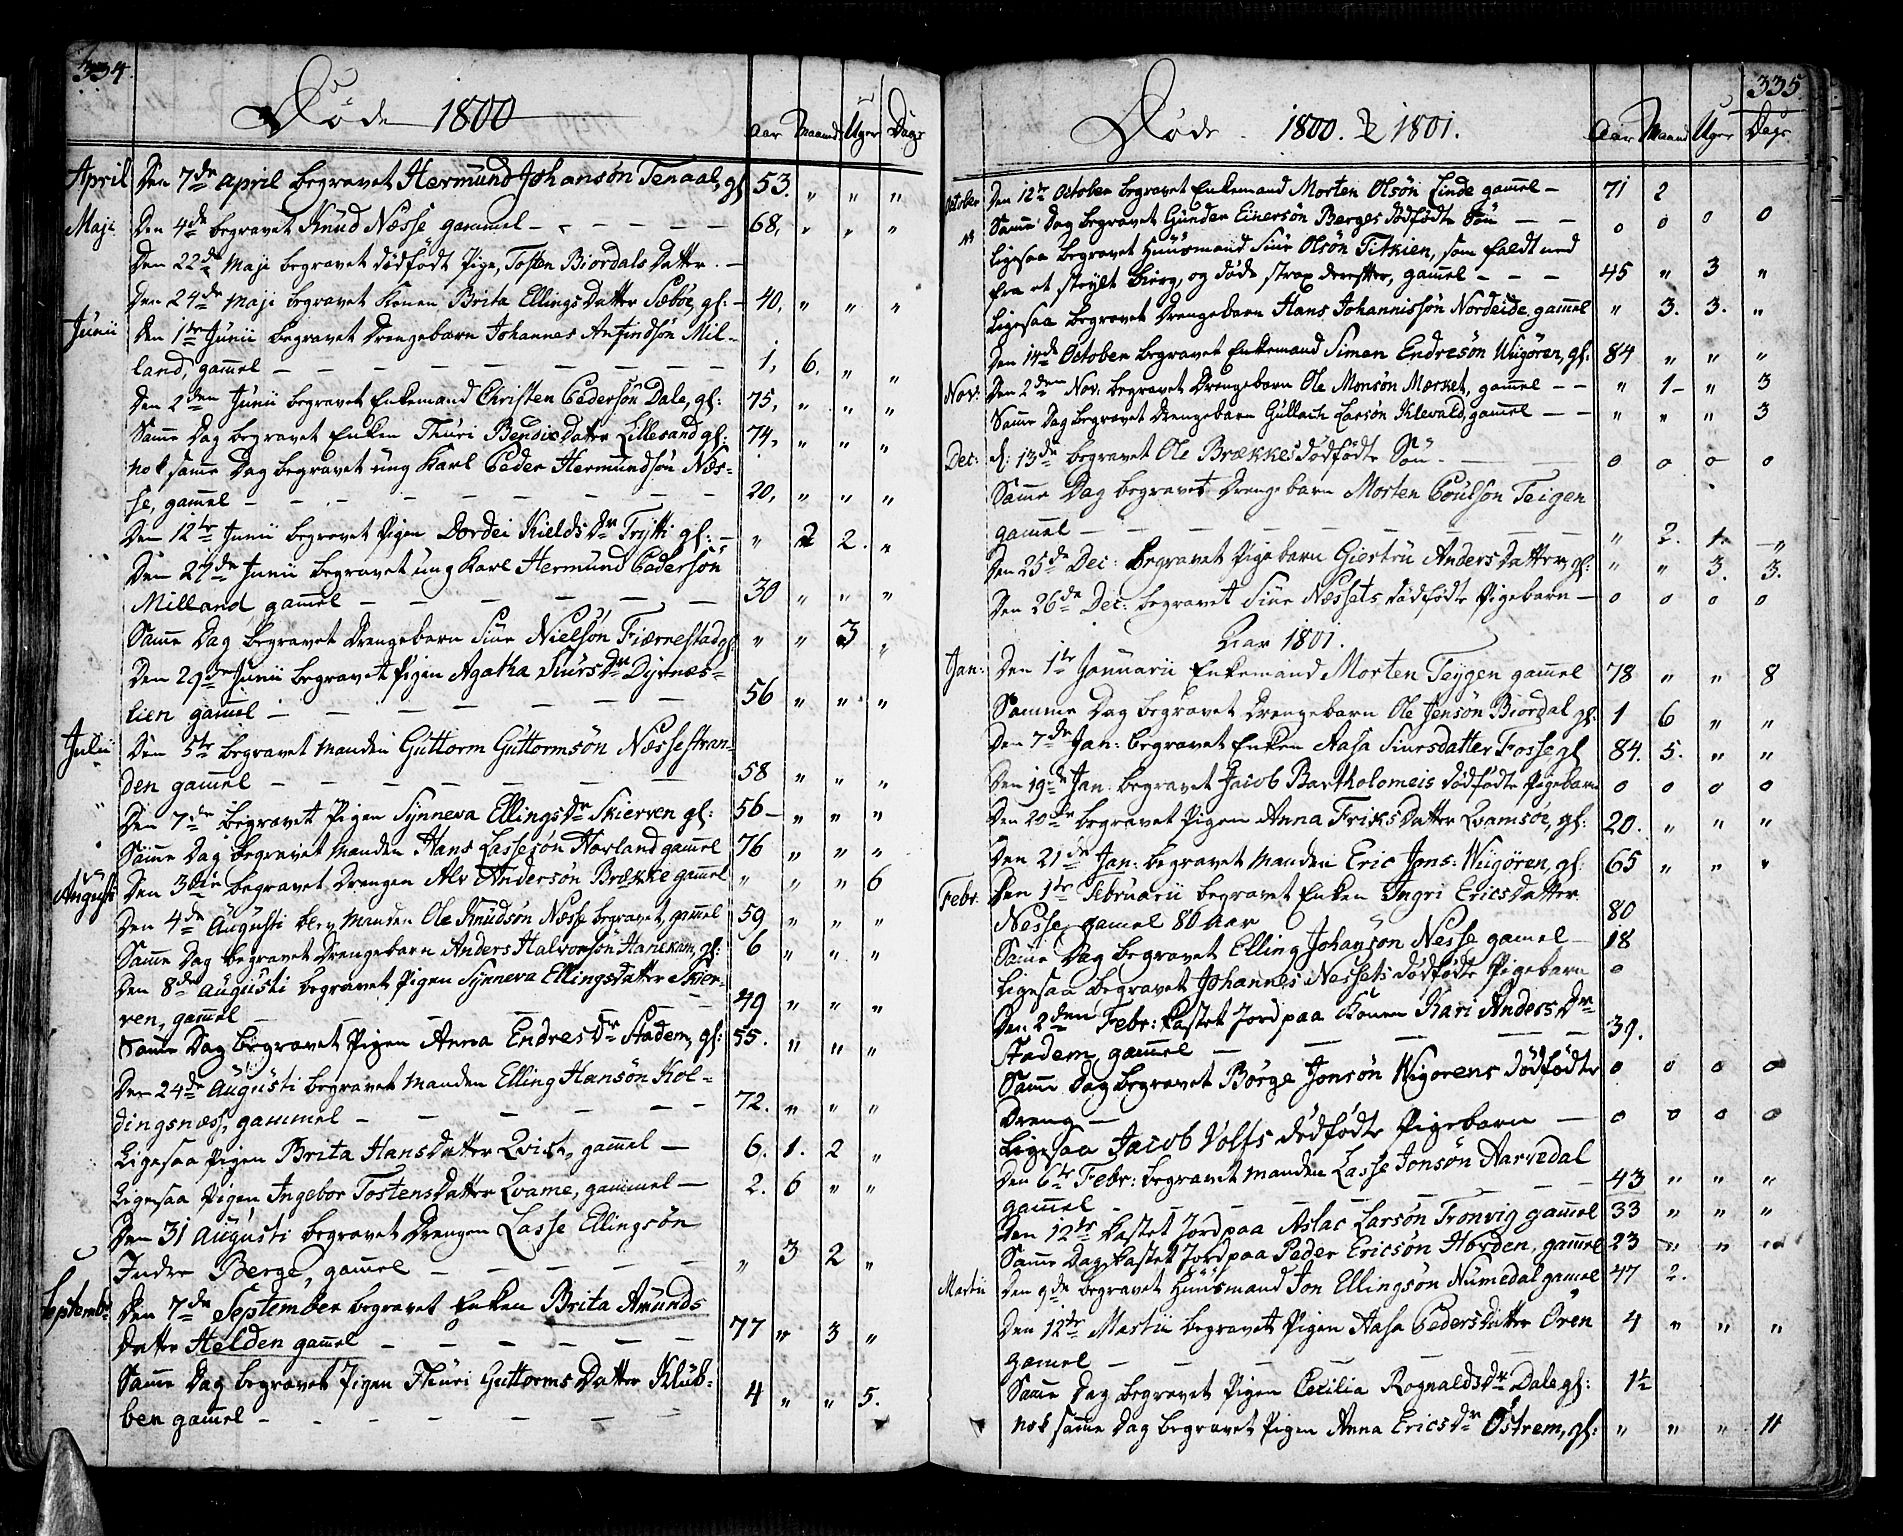 334.
Døde 1800
Aar Maand Uger Dage
April Den 7de April begravet Hermund Johansøn Tenaal, gl 53. " " "
Maji Den 4de begravet Knud Næsse gammel — 68, " " "
Den 22de Maji begravet dødfødt Pige, Tosten Biordals Datter. —
Den 24de Maji begravet Konen Brita EllingsDatter Sæbøe, gl: — 40, " " "
Junii Den 1te Junii begravet Drengebarn Johannes Anfindsøn Mil-
land, gammel — 1, 6. " "
Den 2den Junii begravet Enkemand Christen Pedersøn Dale, gl: 75, " " "
Samme Dag begravet Enken Thuri BendixDatter Lillesand gl: 74, " " "
nok samme Dag begravet ung Karl Peder Hermundsøn Næs-
se, gammel — 20, " " "
Den 12te Junii begravet Pigen Dordei KieldsDr Trytti gl: — " 2 2. "
Den 27de Junii begravet ung Karl Hermund Pedersøn
Milland, gammel — 30 " " "
Samme Dag begravet Drengebarn Siur Nielsøn Fiærnestad gl: " " 3 "
Den 29de Junii begravet Pigen Agatha SiursDr Dyrnæs-
lien gammel — 56 " " "
Julii Den 5te begravet Manden Guttorm Guttormsøn Næssestran-
den gammel — 58 " " "
Den 7de begravet Pigen Synneva EllingsDr Skierven gl: 56 — " " "
Samme Dag begravet Manden Hans Lassesøn Hovland gammel 76 " " "
Augusti Den 3die begravet Drengen Alv Andersøn Brække gammel " " " 6
Den 4de Augusti blev Manden Ole Knudsøn Næsse begravet, gammel 59 " " "
Samme Dag begravet Drengebarn Anders Halvorsøn Hariekam, gl: 6 " " "
Den 8de Augusti begravet Pigen Synneva EllingsDatter Skier-
ven, gammel — 49 " " "
Samme Dag begravet Pigen Anna EndresDr Stadem, gl: 55. " " "
Den 24de Augusti begravet Manden Elling Hansøn Kol-
dingsnæss, gammel — 72. " " "
Ligesaa Pigen Brita HansDatter Qviste, gammel — 6. 1. 2 "
Ligesaa Pigen, Ingebor TostensDatter Qvame, gammel — 2. 6 " "
Den 31 Augusti begravet Drengen Lasse Ellingsøn
Indre Berge, gammel — " 3 2 "
Septembr Den 7de September begravet Enken Brita Amunds
Datter Helden gammel — 77 " 3 "
Samme Dag begravet Pigen Thuri GuttormsDatter Klüb-
ben gammel — 4 " " 5.
335.
Døde 1800. & 1801.
Aar Maand Uger Dage
October Den 12te October begravet Enkemand Morten Olsøn Linde gammel — 71 2
Samme Dag begravet Gunder Einersøn Berges dødfødte Søn — 0 0 0 0
Ligesaa begravet Huusmand Siur Olsøn Titkien, som faldt ned
fra et steylt bierg, og døde strax derefter, gammel — 45 " 3 "
Ligesaa begravet Drengebarn Hans Johannissøn Nordeide, gammel " 3. 3. "
Den 14de October begravet Enkemand Simen Endresøn Wigøren, gl: 84 " " "
Nov: Den 2den Nov: begravet Drengebarn Ole Monsøn Mærket, gammel — " 1 — " 3
Samme Dag begravet Drengebarn Gullach Larsøn Klevald, gammel — " " " 3
Dec: d: 13de begravet Ole Brækkes dødfødte Søn — 0 0 0 0
Samme Dag begravet Drengebarn Morten Poulsøn Teigen
gammel — " 2. 1. "
Den 25de Dec: begravet Pigebarn Giertru AndersDatter, gl: " " 3. 3.
Den 26de Dec: begravet Siur Næssets dødfødte Pigebarn — 0 0 0 0
Aar 1801.
Jan: Den 1te Januarii Enkemand Morten Teygen gammel 78 " " 8
Samme Dag begravet Drengebarn Ole Jensøn Biordal gl: 1 6 " "
Den 7de Jan: begravet Enken Aasa Siursdatter Fosse gl 84. 5. " "
Den 19de Jan: begravet Jacob Bartholomeis dødfødte Pigebarn 0 0 0 0
Den 20de begravet Pigen Anna FriksDatter Qvamsøe, gl: 20. " " "
Den 21de Jan: begravet Manden Eric Jons: Wiigøren, gl: 65 " " "
Febr. Den 1te Februarii begravet Enken Ingri EricsDatter
Nesse, gamel 80 Aar 80
Samme Dag begravet Elling Johanson Nesse gamel — 18
Ligesaa begravet Johannes Nessets dødfødte Pigebarn 0
Den 2den Febr: kastet Jord paa Konen Kari AndersDr
Stadem, gammel — 39.
Samme Dag begravet Børge Jonsøn Wigorens dødfødte 0 0 0 0
Dreng —
Ligesaa Jacob Volfs dødfødte Pigebarn — 0 0 0 0
Den 6te Febr: begravet Manden Lasse Jonsøn Aarvedal
gammel — 43 " " "
Den 12te kastet Jord paa Aslac Larsøn Tronvig gammel 33 " " "
Samme Dag kastet Jord paa Peder Ericsøn Horden, gammel 23 " " "
Martii Den 9de begravet Huusmand Jon Ellingsøn Numedal gamel 47 2.
Den 12te Martii begravet Pigen Aasa PedersDatter Øren 4 " " "
gamel —
Samme Dag begravet Pigen Cecilia RognaldsDr Dale gl: 1½
nok samme Dag begravet Pigen Anna EricsDr Østrem, gl: " " " 11